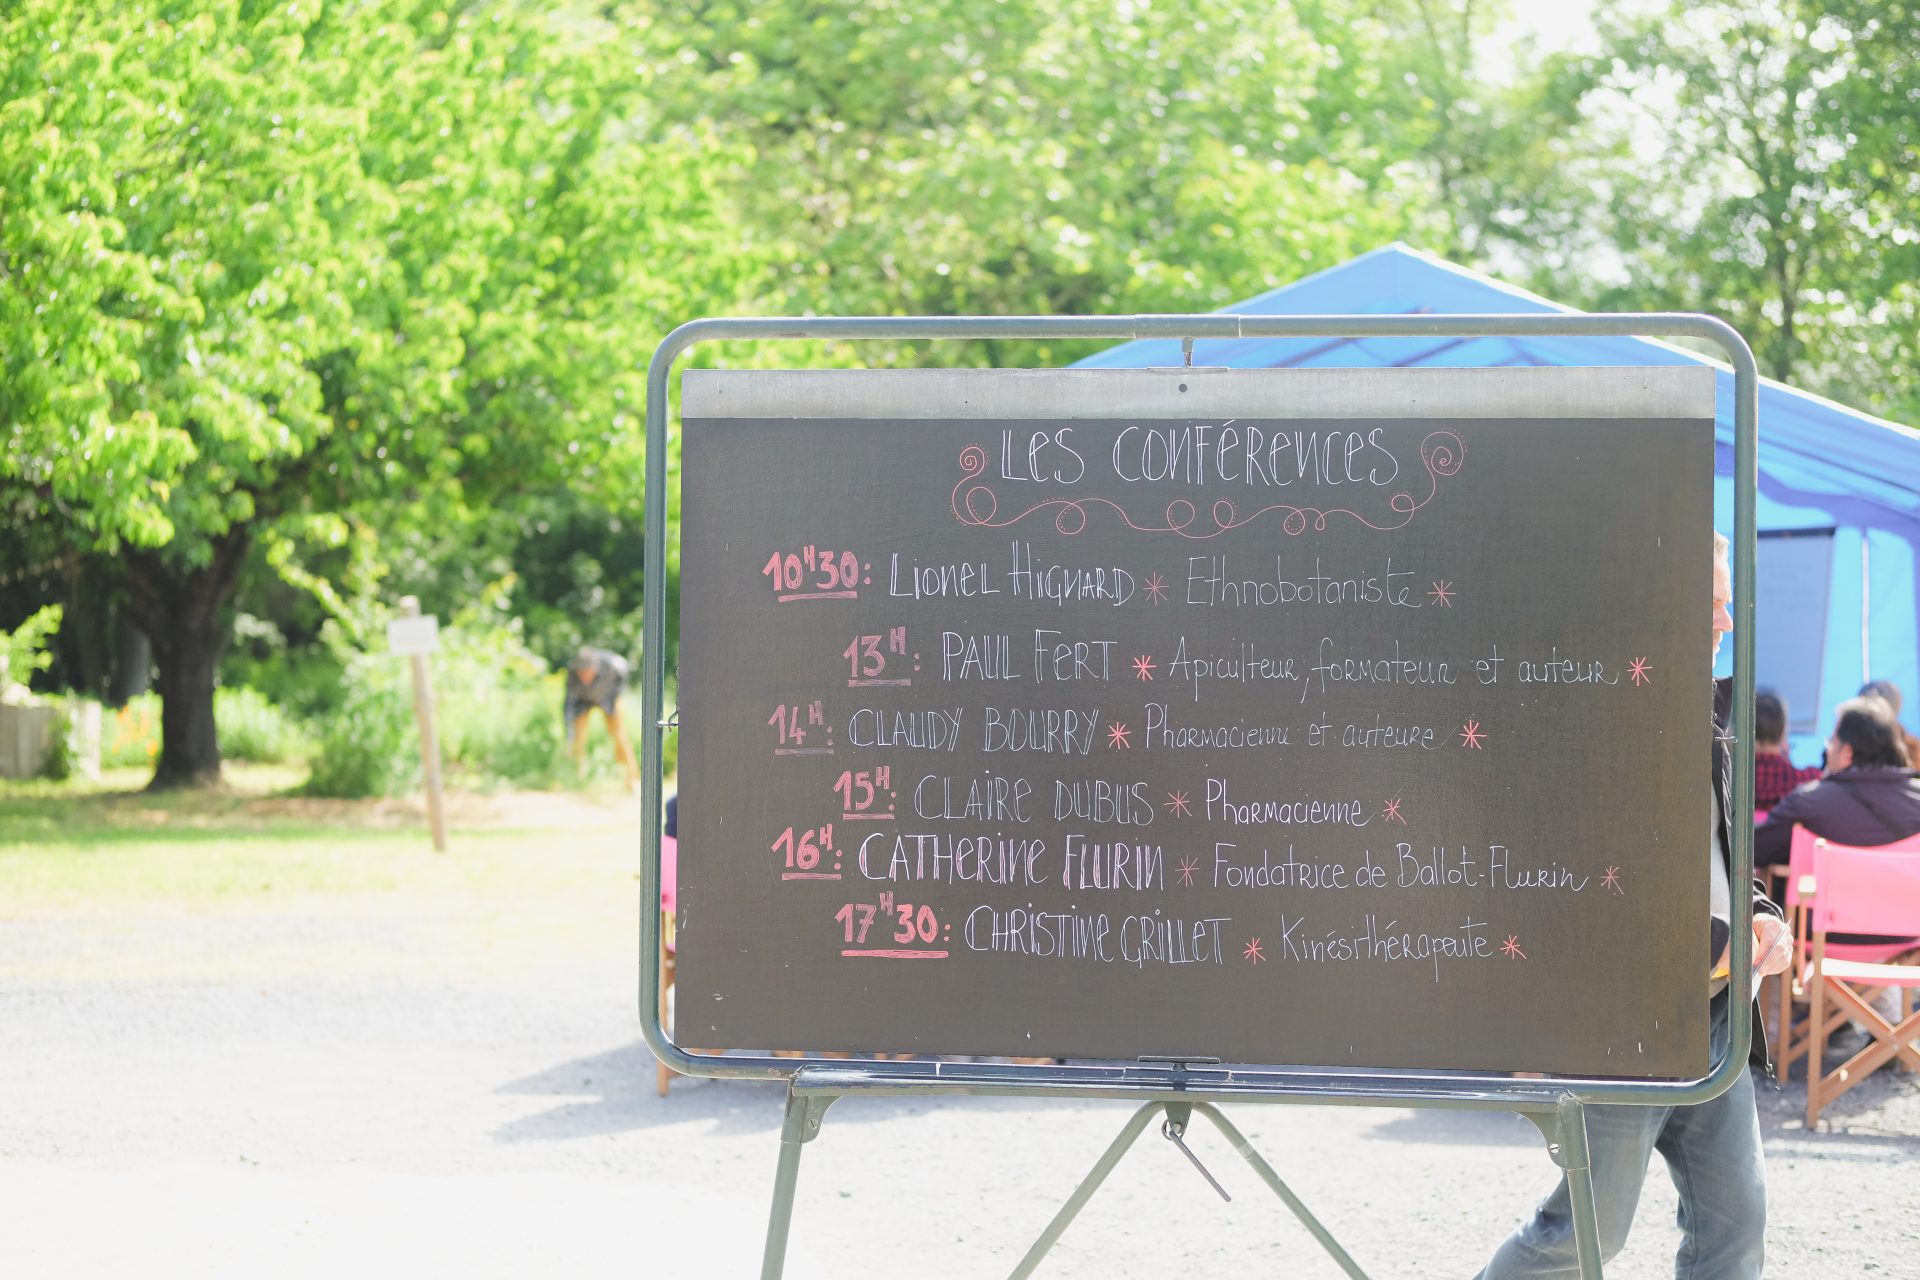 Les Conférences
10H30: Lionel Hignard * Ethnobotaniste *
13H: Paul Fert * Apiculteur, formateur et auteur *
14H: Claudy Bourry * Pharmacienne et auteure *
15H: Claire Dubus * Pharmacienne *
16H: Catherine Flurin * Fondatrice de Ballot-Flurin *
17H30: Christine Grillet * Kinésithérapeute *